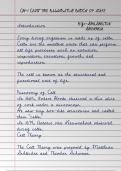 CH-1 CELL: THE
Introduction
By:-
Every living organism is made up of cells.
Cells are the smallest units that can perform
all life processes such as nutrition,
respiration, excretion, growth, and
reproduction.
The cell is known as the structural and
functional unit of life.
Discovery of Cell
In 1665, Robert Hooke observed a thin slice
of cork under a microscope.
He saw tiny box-like structures and called
them cells.
In 1674, Antonie van Leeuwenhoek observed
living cells.
Cell Theory
The Cell Theory was proposed by Matthias
Schleiden and Theodor Schwann.